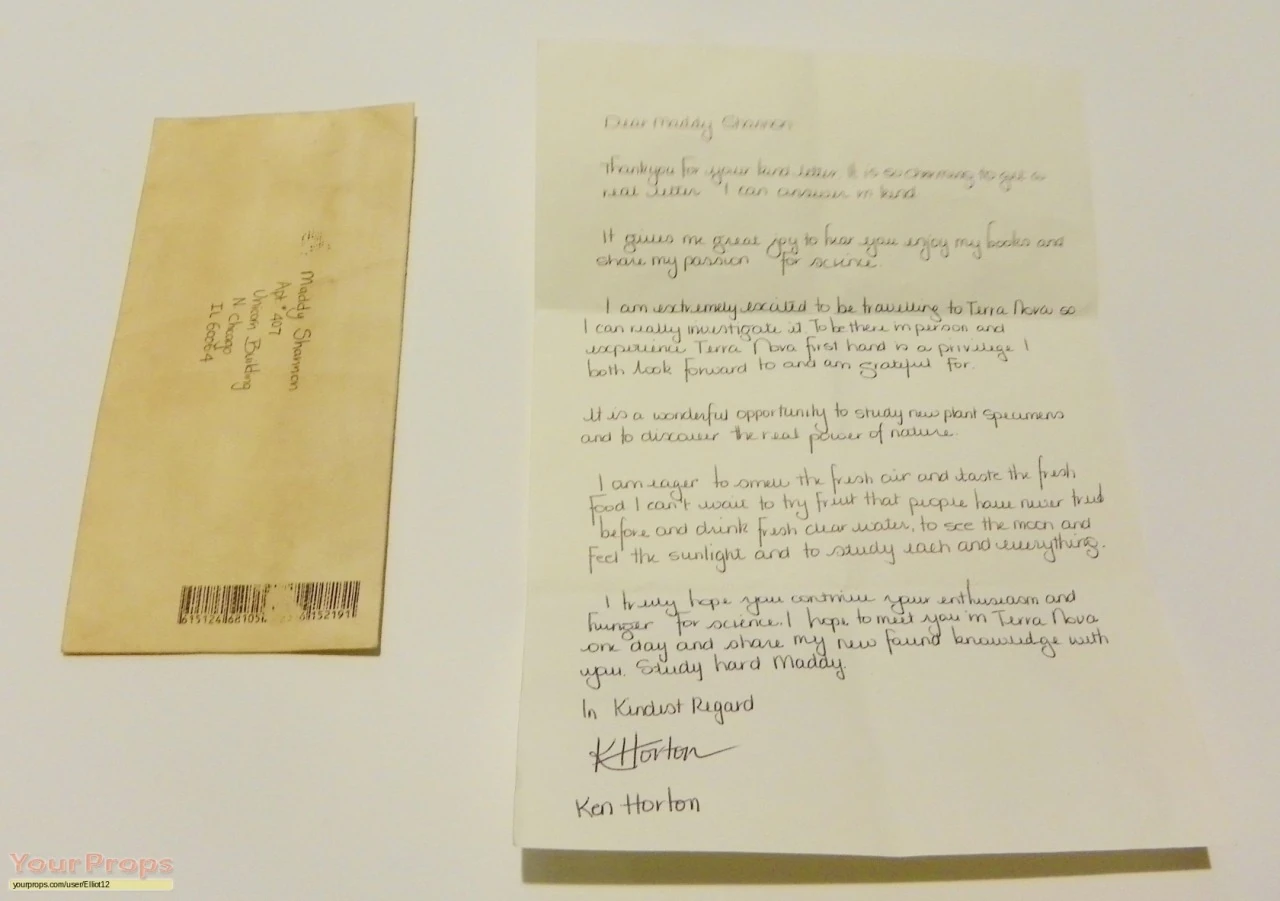 Maddy Shannon
Apt # 407
Unicorn Building
N. Chicago
IL 60064
615124681056
6152191
Dear Maddy Shannon
Thankyou for your kind letter. It is so charming to get a
real letter I can answer in kind.
It gives me great joy to hear you enjoy my books and
share my passion for science.
I am extremely excited to be travelling to Terra Nova so
I can really investigate it. To be there in person and
experience Terra Nova first hand is a privilege I
both look forward to and am grateful for.
It is a wonderful opportunity to study new plant specimens
and to discover the real power of nature.
I am eager to smell the fresh air and taste the fresh
food I can't wait to try fruit that people have never tried
before and drink fresh clear water, to see the moon and
feel the sunlight and to study each and everything.
I truly hope you continue your enthusiasm and
hunger for science. I hope to meet you in Terra Nova
one day and share my new found knowledge with
you. Study hard Maddy.
In Kindest Regard
KHorton
Ken Horton
YourProps
yourprops.com/user/Elliot12